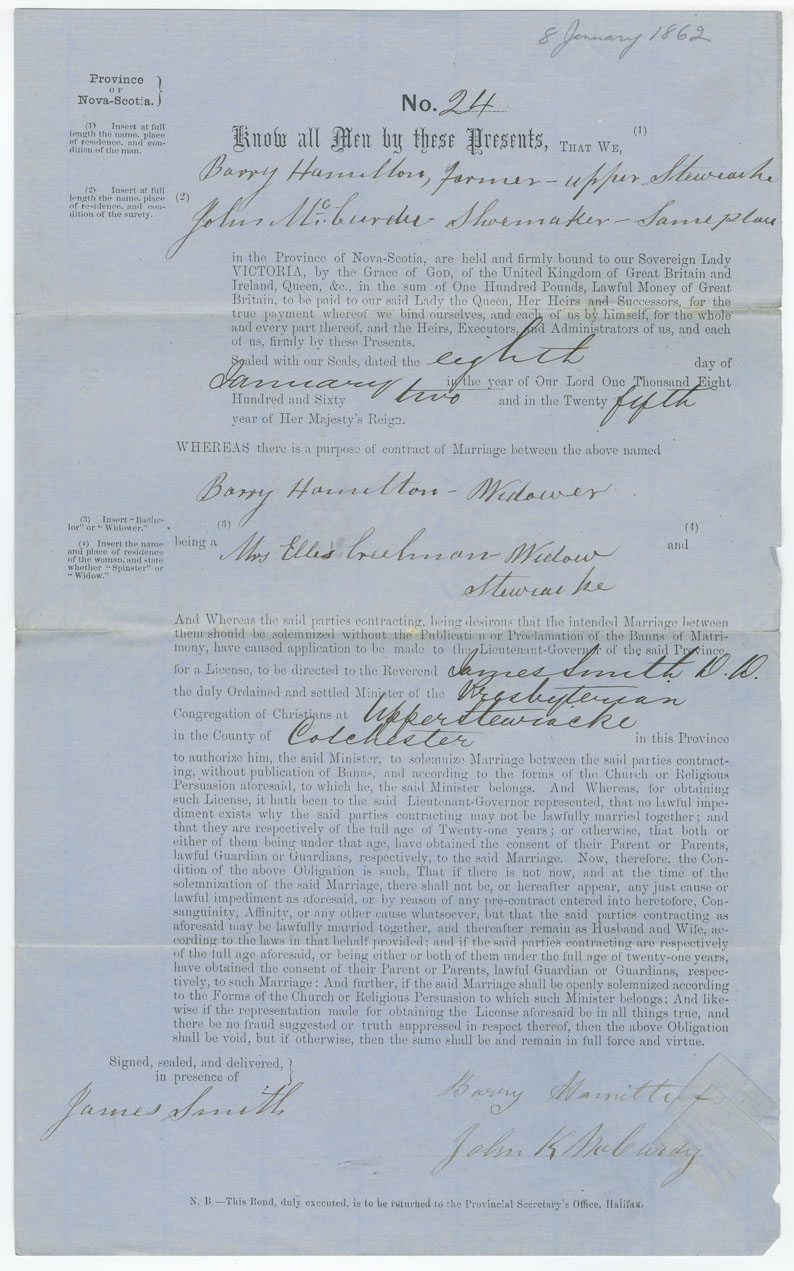 8 January 1862
Province
OF
Nova-Scotia.
No. 24
(1) Insert at full
length the name, place
of residence, and con-
dition of the man.
Know all Men by these Presents, THAT WE, (1)
Barry Hamilton, farmer - upper Stewiacke
(2) Insert at full
length the name, place
of residence, and con-
dition of the surety.
(2)
John McCurdie Shoemaker - Same place
in the Province of Nova-Scotia, are held and firmly bound to our Sovereign Lady
VICTORIA, by the Grace of GOD, of the United Kingdom of Great Britain and
Ireland, Queen, &c., in the sum of One Hundred Pounds, Lawful Money of Great
Britain, to be paid to our said Lady the Queen, Her Heirs and Successors, for the
true payment whereof we bind ourselves, and each of us by himself, for the whole
and every part thereof, and the Heirs, Executors, and Administrators of us, and each
of us, firmly by these Presents.
Sealed with our Seals, dated the eighth day of
January in the year of Our Lord One Thousand Eight
Hundred and Sixty two and in the Twenty fifth
year of Her Majesty's Reign.
WHEREAS there is a purpose of contract of Marriage between the above named
Barry Hamilton - Widower
(3) Insert "Bache-
lor" or "Widower."
(4) Insert the name
and place of residence
of the woman, and state
whether "Spinster" or
"Widow."
(3) (4)
being a Mrs Creelman - Widow and
Stewiacke
And Whereas the said parties contracting, being desirous that the intended Marriage between
them should be solemnized without the Publicati n or Proclamation of the Banns of Matri-
mony, have caused application to be made to the Lieutenant-Governor of the said Province,
for a License, to be directed to the Reverend James Smith D. D.
the duly Ordained and settled Minister of the Presbyterian
Congregation of Christians at Upper Stewiacke
in the County of Colchester in this Province
to authorize him, the said Minister, to solemnize Marriage between the said parties contract-
ing, without publication of Banns, and according to the forms of the Church or Religious
Persuasion aforesaid, to which he, the said Minister belongs. And Whereas, for obtaining
such License, it hath been to the said Lieutenant-Governor represented, that no lawful impe-
diment exists why the said parties contracting may not be lawfully married together; and
that they are respectively of the full age of Twenty-one years; or otherwise, that both or
either of them being under that age, have obtained the consent of their Parent or Parents,
lawful Guardian or Guardians, respectively, to the said Marriage. Now, therefore, the Con-
dition of the above Obligation is such, That if there is not now, and at the time of the
solemnization of the said Marriage, there shall not be, or hereafter appear, any just cause or
lawful impediment as aforesaid, or by reason of any pre-contract entered into heretofore, Con-
sanguinity, Affinity, or any other cause whatsoever, but that the said parties contracting as
aforesaid may be lawfully married together, and thereafter remain as Husband and Wife, ac-
cording to the laws in that behalf provided; and if the said parties contracting are respectively
of the full age aforesaid, or being either or both of them under the full age of twenty-one years,
have obtained the consent of their Parent or Parents, lawful Guardian or Guardians, respec-
tively, to such Marriage: And further, if the said Marriage shall be openly solemnized according
to the Forms of the Church or Religious Persuasion to which such Minister belongs: And like-
wise if the representation made for obtaining the License aforesaid be in all things true, and
there be no fraud suggested or truth suppressed in respect thereof, then the above Obligation
shall be void, but if otherwise, then the same shall be and remain in full force and virtue.
Signed, sealed, and delivered,
in presence of
James Smith
Barry Hamilton
John K McCurdy
N. B.—This Bond, duly executed, is to be returned to the Provincial Secretary's Office, Halifax.